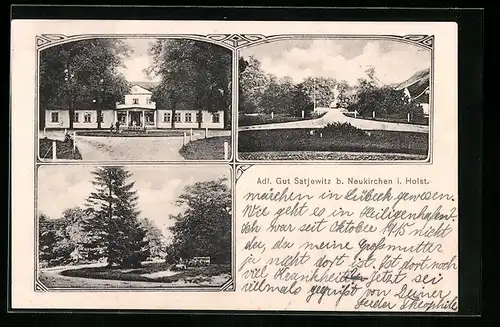 Adl. Gut Satjewitz b. Neukirchen i. Holst.
märchen in Lübeck gewesen.
Wie geht es in Heiligenhafen.
Ich war seit Oktober 1915 nicht
da, da meine Großmutter
ja nicht dort ist. Ist dort noch
viel Krankheit. Jetzt sei
vielmals gegrüßt von Deiner
Theophile